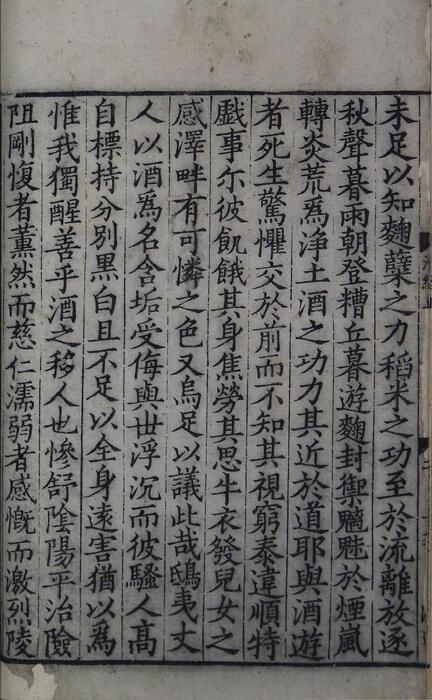 未足以知麴蘖之力稻米之功至於流離放逐
秋聲暮雨朝登糟丘暮遊麴封禦魑魅於煙嵐
轉炎荒爲浄土酒之功力其近於道耶與酒遊
者死生驚懼交於前而不知其視窮泰違順特
戲事尓彼飢餓其身焦勞其思牛衣發兒女之
感澤畔有可憐之色又烏足以議此哉鴟夷丈
人以酒爲名含垢受侮與世浮沉而彼騷人高
自標持分别黒白且不足以全身遠害猶以爲
惟我獨醒善乎酒之移人也慘舒陰陽平治險
阻剛愎者薫然而慈仁濡弱者感慨而激烈陵